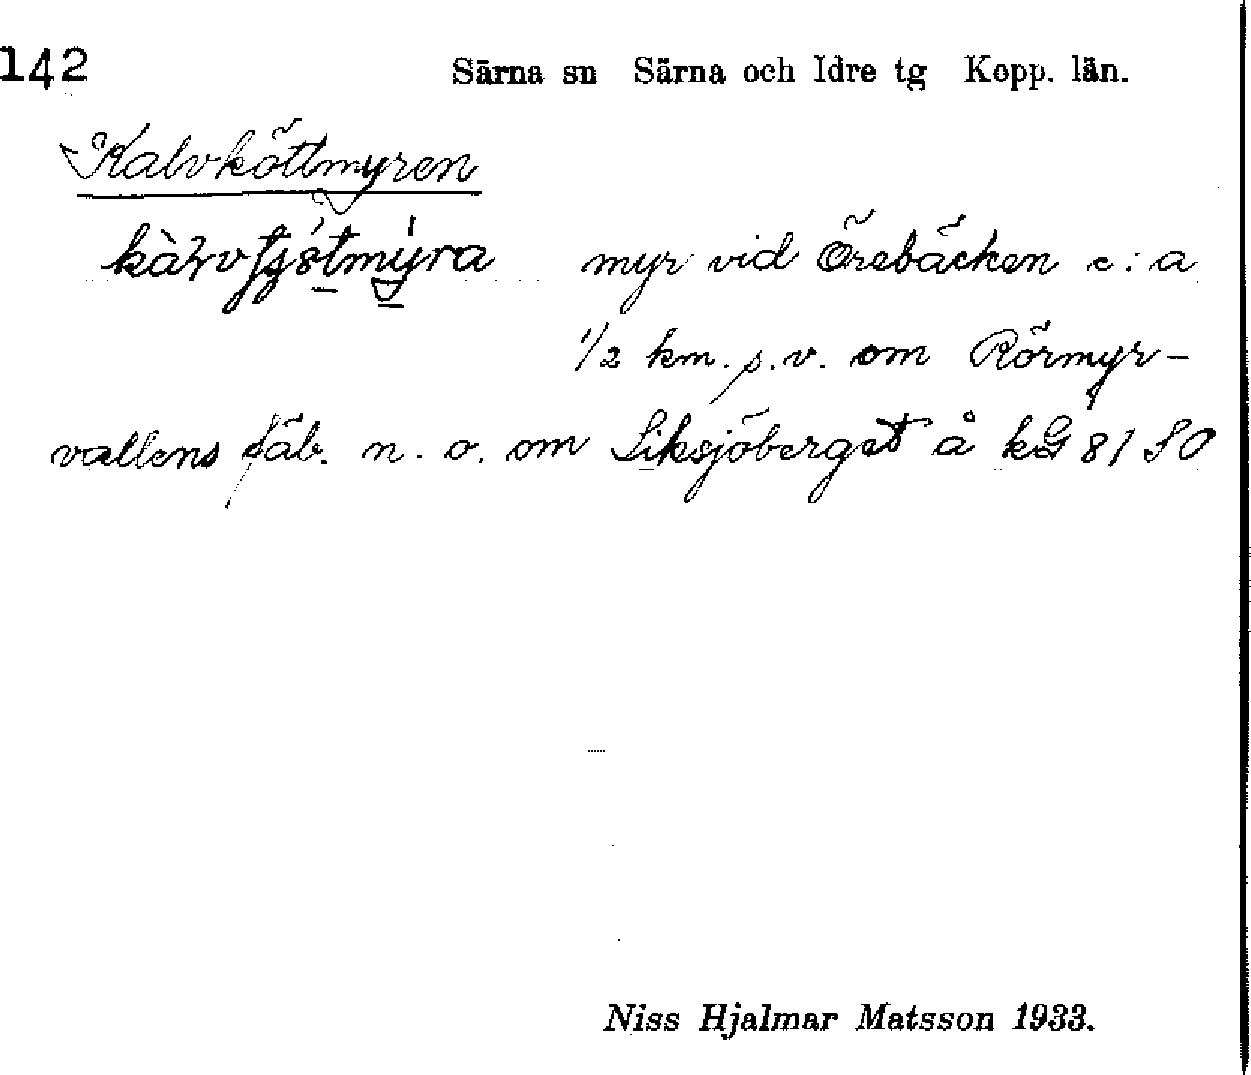 142 Särna sn Särna och Idre tg Kopp. län.
Kalvköttmyren
myr vid Örebäcken c:a
1/2 km. s.v. om Rörmyr-
vallens fäb. n. o. om Siksjöberget å kG 81 SO
Niss Hjalmar Matsson 1933.